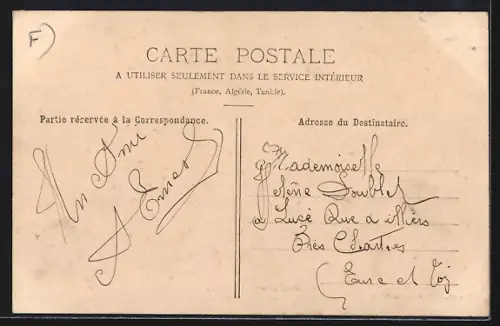 F)
CARTE POSTALE
A UTILISER SEULEMENT DANS LE SERVICE INTÉRIEUR
(France, Algérie, Tunisie).
Partie récervée à la Correspondance.
Un Ami
A Ernest
Adresse du Destinataire.
Mademoiselle
Doublet
à Lucé Rue d'illiers
Près Chartres
Eure et Loir